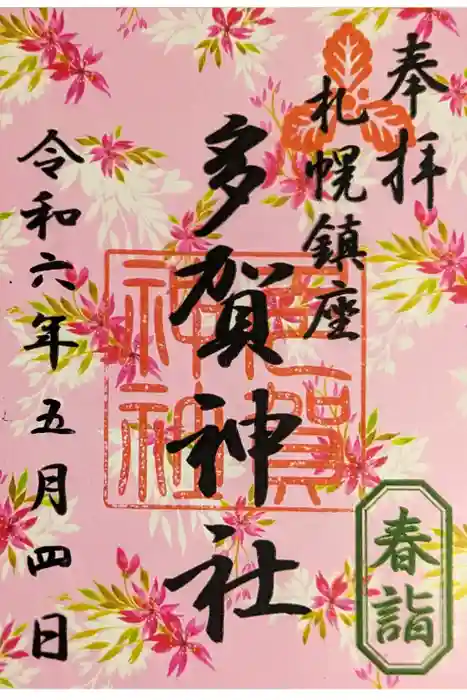 奉拝
札幌鎮座
多賀神社
令和六年五月四日
多賀神社
春詣